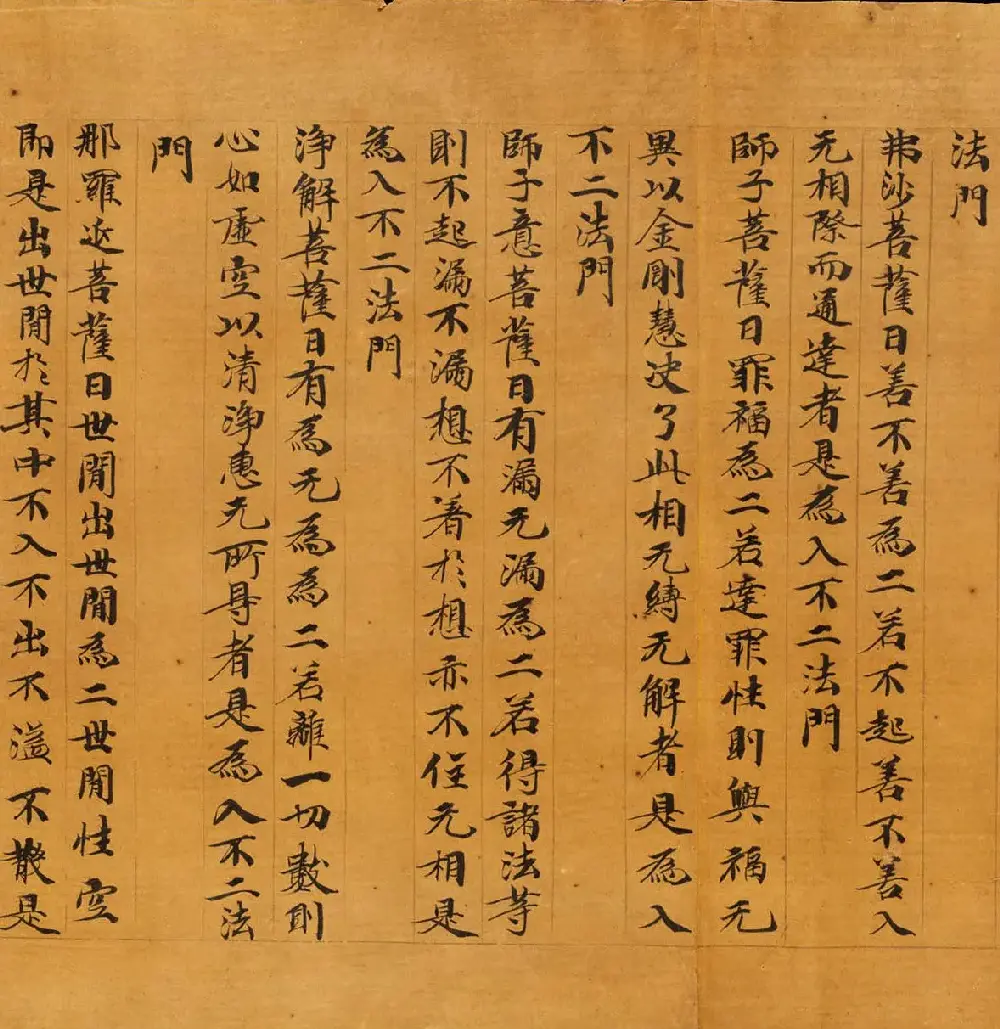 法門
弗沙菩薩曰善不善為二若不起善不善入
无相際而通達者是為入不二法門
師子菩薩曰罪福為二若達罪性則與福无
異以金剛慧决了此相无縛无解者是為入
不二法門
師子意菩薩曰有漏无漏為二若得諸法等
則不起漏不漏想不著於想亦不住无相是
為入不二法門
淨解菩薩曰有為无為為二若離一切數則
心如虛空以清淨惠无所㝵者是為入不二法
門
那羅延菩薩曰世間出世間為二世間性空
即是出世間於其中不入不出不溢不散是